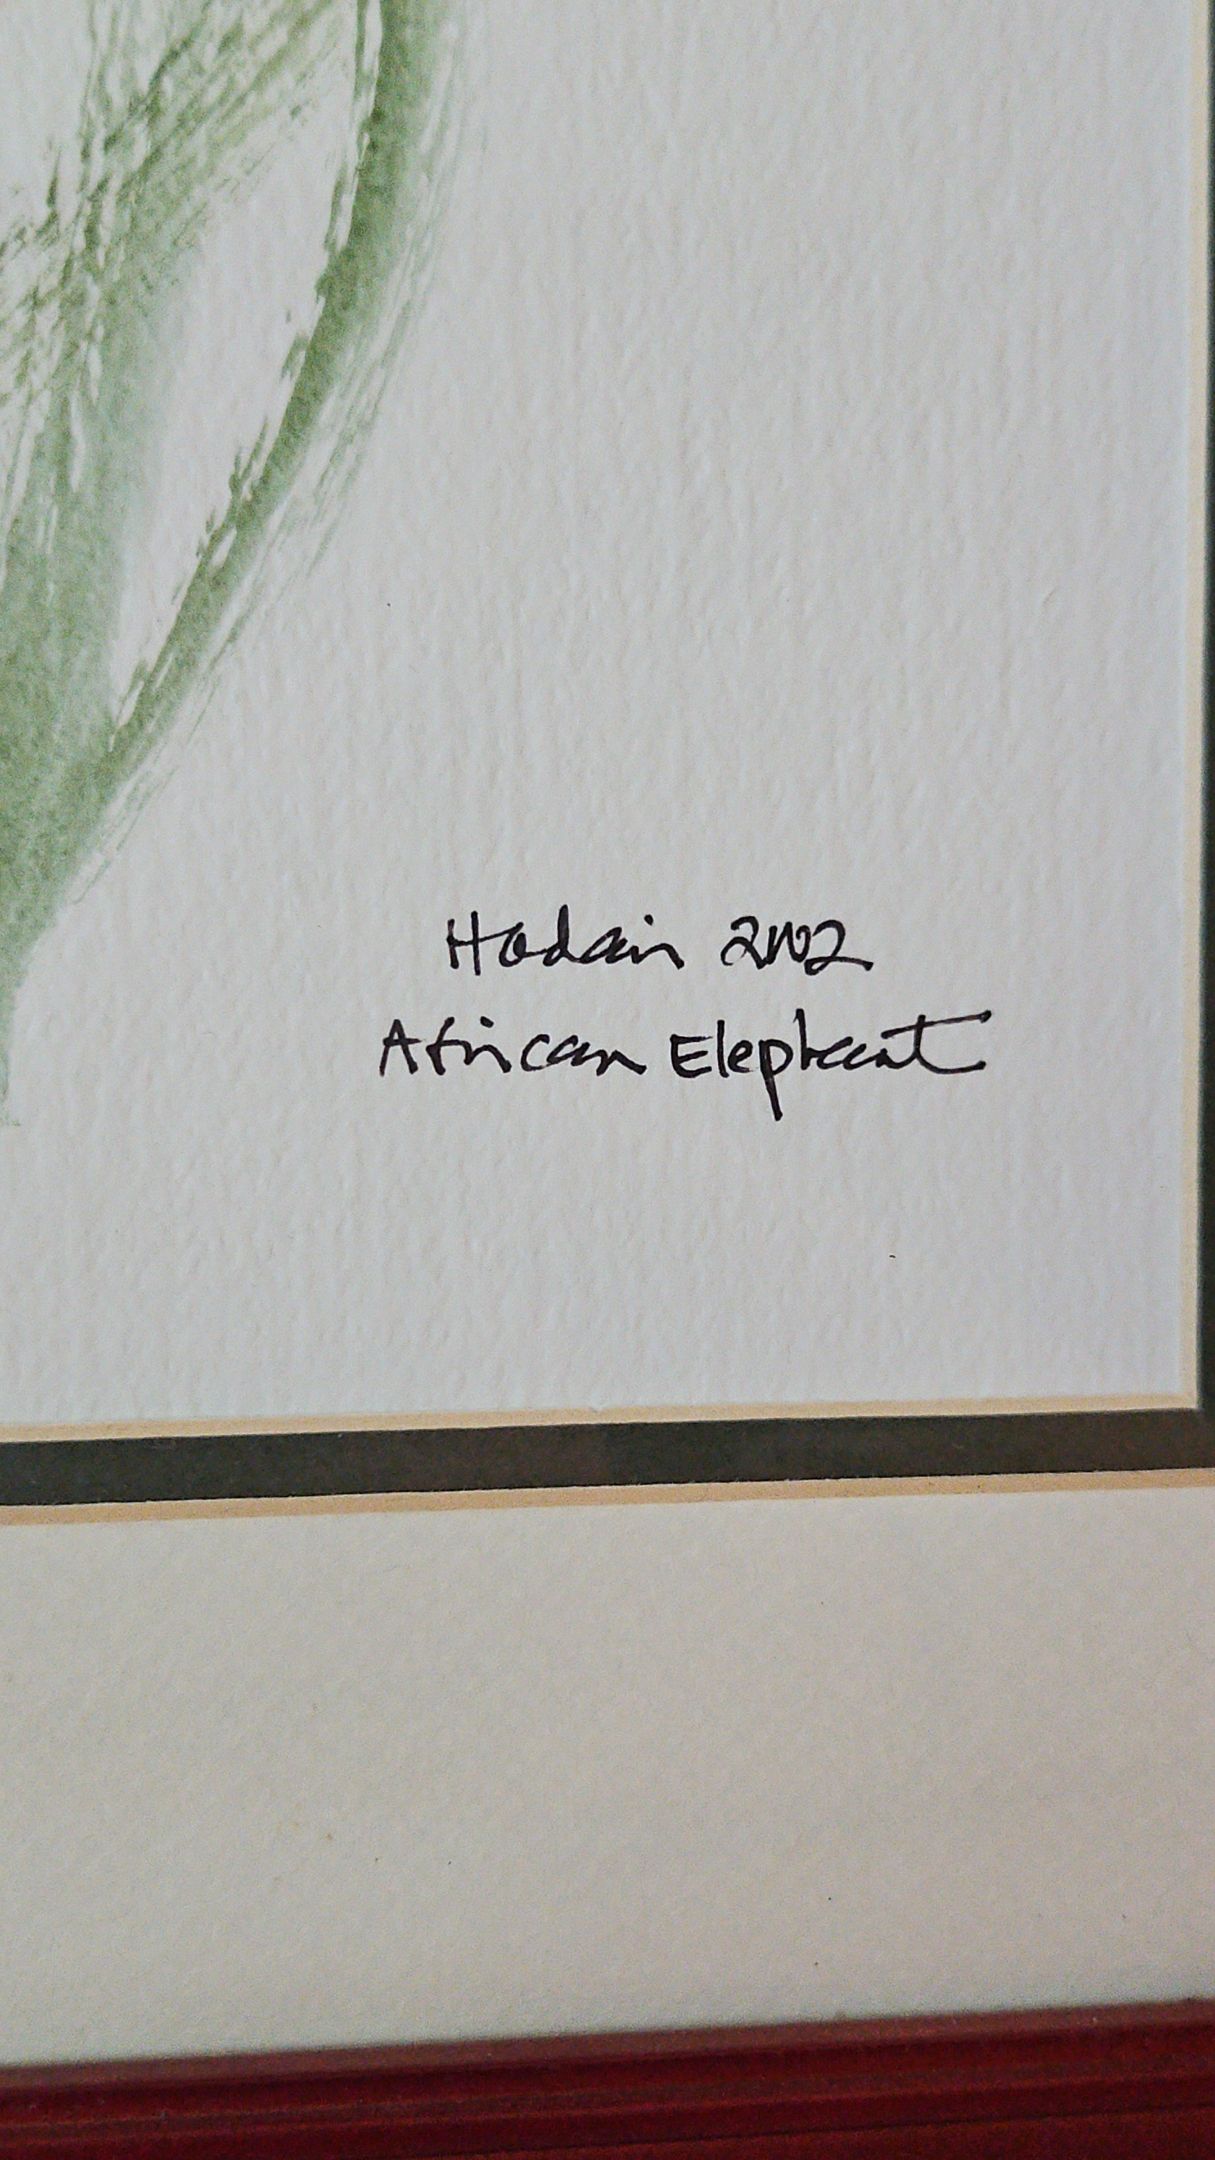 Hodari 2002
African Elephant